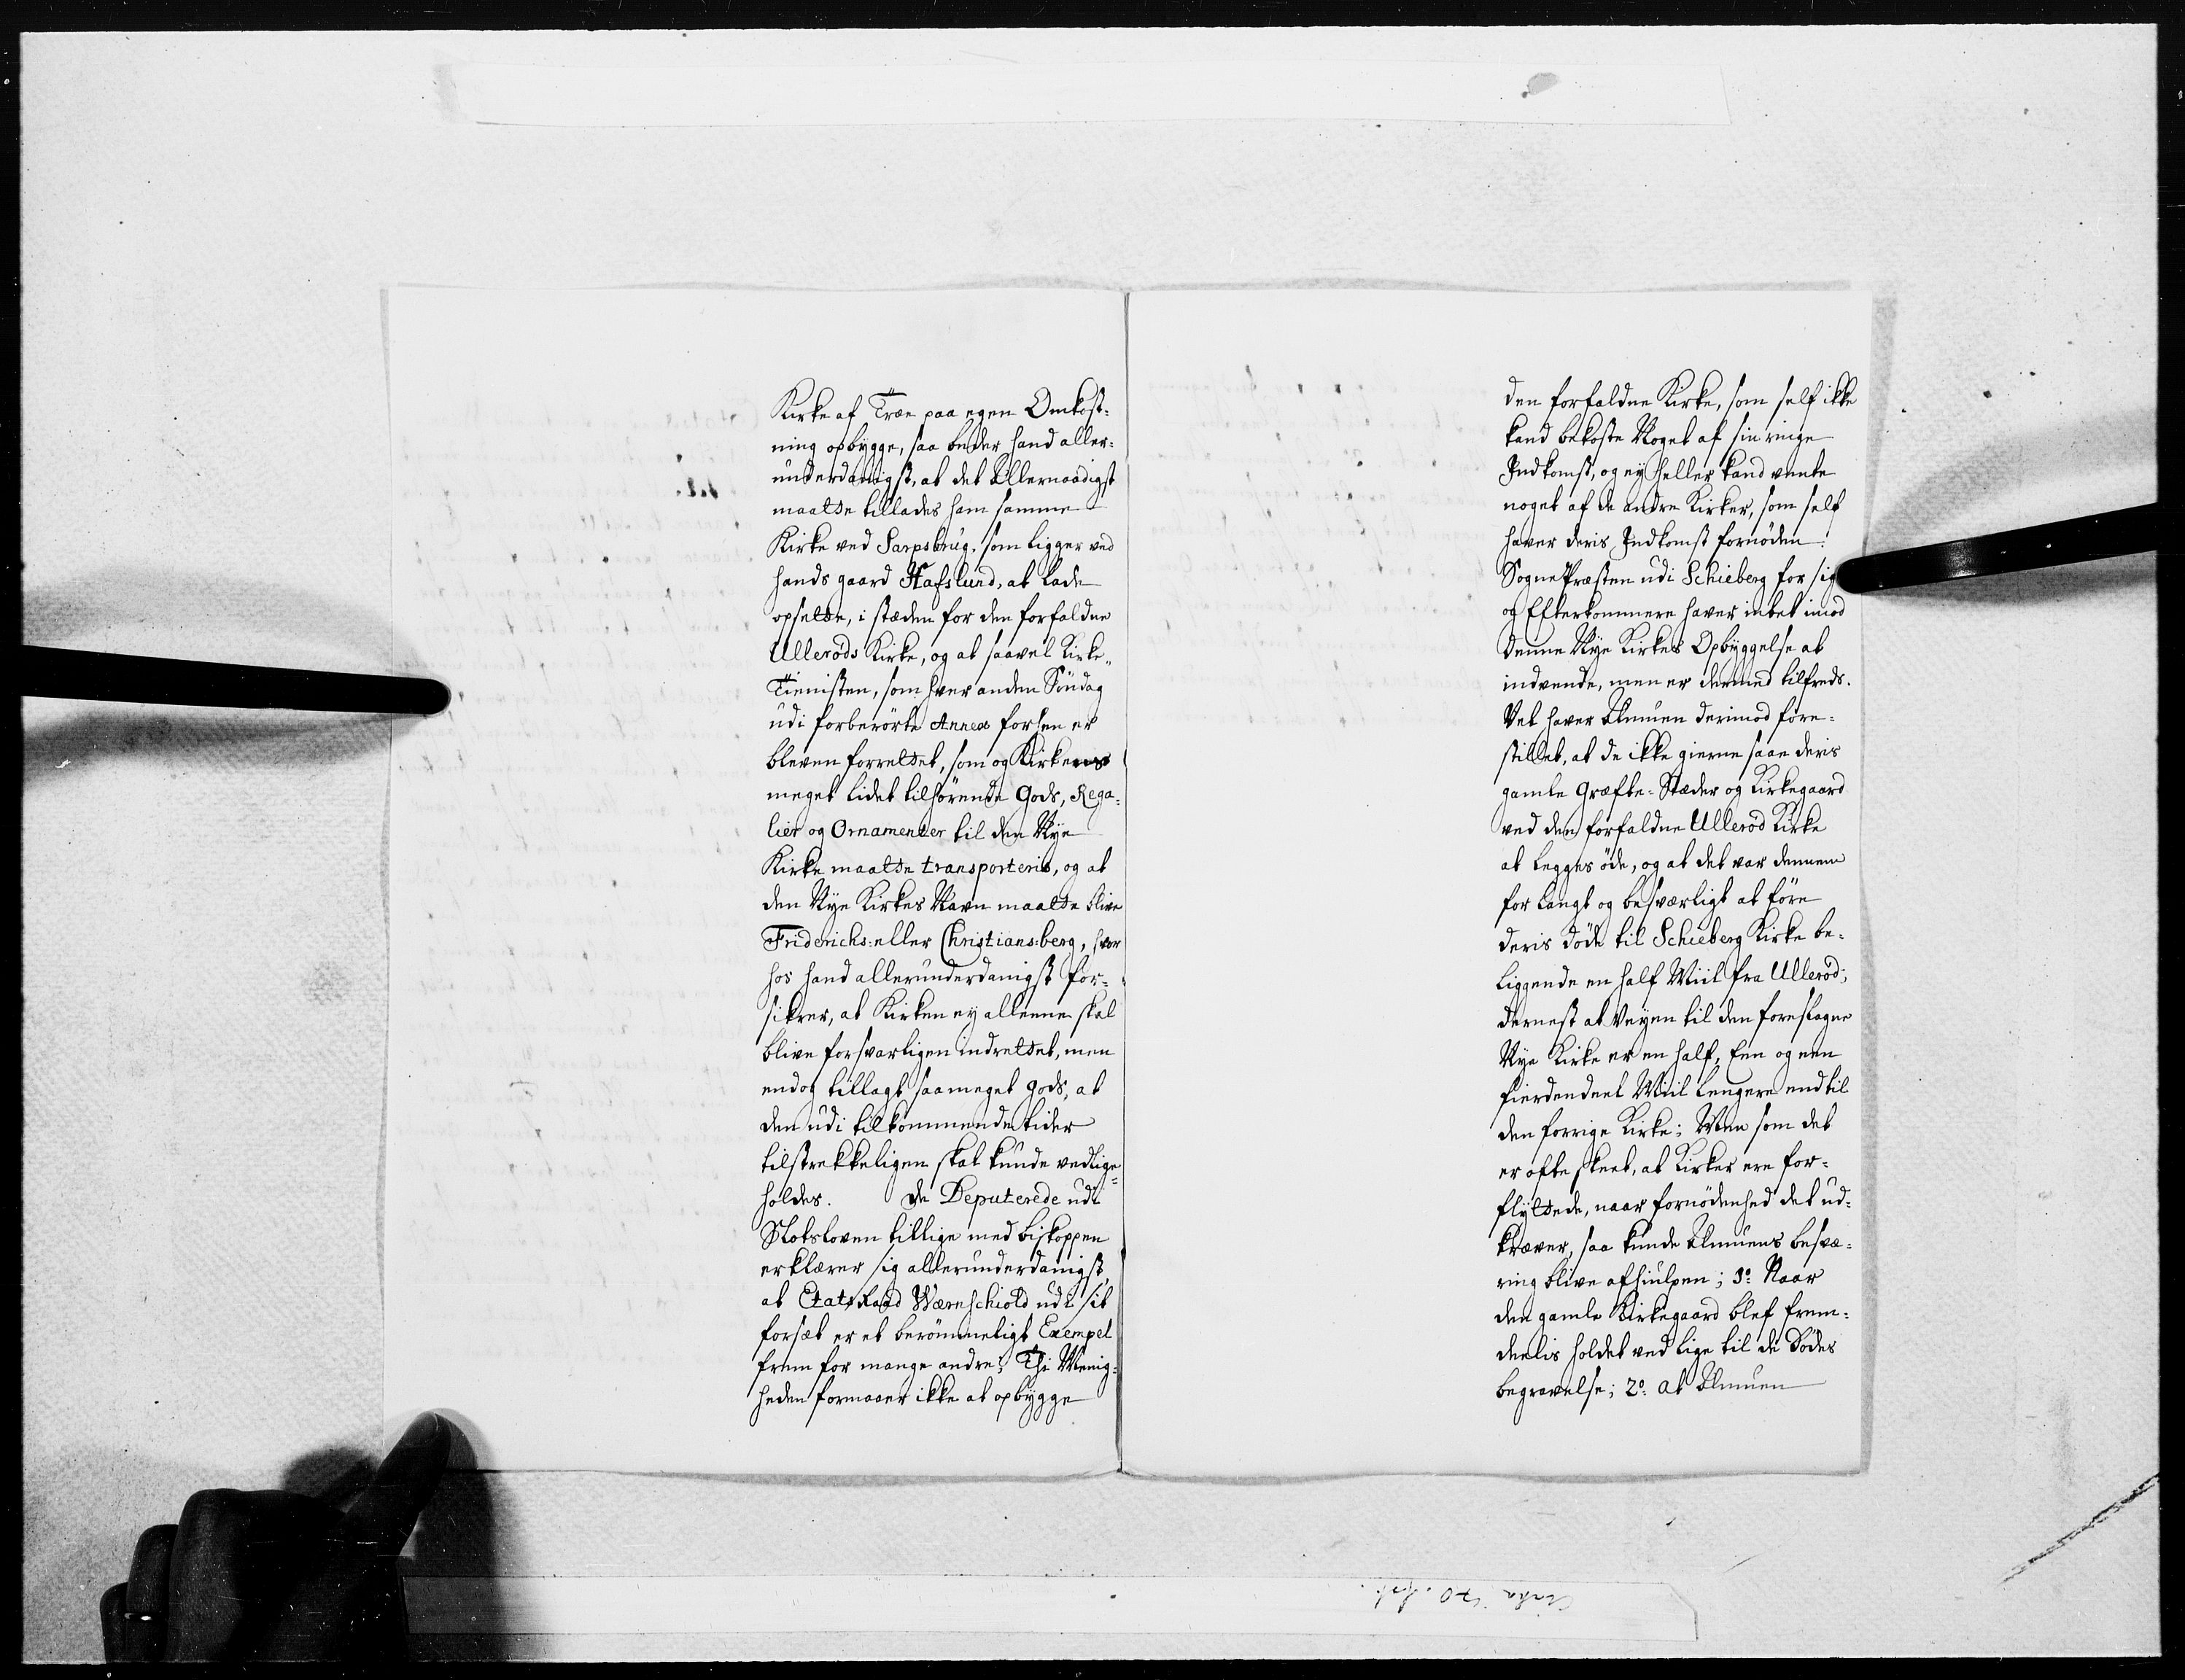 Kirke af Træe paa egen Omkost-
ning opbygge, saa beder hand aller-
underdanigst, at det Allernaadigst
maatte tillades ham samme
Kirke ved Sarpsbrug, som ligger ved
hands gaard Hafslund, at lade
opsette, i stæden for den forfaldne
Ullerøds Kirke, og at saavel Kirke-
Tienisten, som hver anden Søndag
udi forberørte Annex forhen er
bleven forrettet, som og Kirkens
meget lidet tilhørende Gods, Rega-
lier og Ornamenter til den Nye
Kirke maatte transporteris, og at
den Nye Kirkes Navn maatte blive
Friderichs- eller Christians-berg, hvor
hos hand allerunderdanigst for-
sikrer, at Kirken ey alleene skal
blive forsvarligen indrettet, men
endog tillagt saameget gods, at
den udi tilkommende tider
tilstrekkeligen skal kunde vedlige-
holdes. De Deputerede udi
Slotsloven tillige med biskoppen
erklærer sig allerunderdanigst,
at Etats Raad Wærnschiold udi sit
forsæt er et berømmeligt Exempel
frem for mange andre; Thi Menig-
heden formaaer ikke at opbygge
den forfaldne Kirke, som self ikke
kand bekoste Noget af sin ringe
Indkomst, og ey heller kand vente
noget af de andre Kirker, som self
haver deris Indkomst fornøden.
SognePræsten udi Schieberg for sig
og Efterkommere haver intet imod
denne Nye Kirkes Opbyggelse at
indvende, men er dermed tilfreds.
Vel haver Almuen derimod fore-
stillet, at de ikke gierne saae deris
gamle Græfte-Stæder og Kirkegaard
ved den forfaldne Ullerød Kirke
at legges øde, og at det var dennem
for langt og besværligt at føre
deris døde til Schieberg Kirke be-
liggende en half Miil fra Ullerød;
dernest at Veyen til den foreslagne
Nye Kirke er en half, Een og een
fierdendeel Miil lengere end til
den forrige Kirke; Men som det
er ofte skeet, at Kirker ere for-
flyttede, naar fornødenhed det ud-
kræver, saa kunde Almuens besvæ-
ring blive afhiulpen; 1º. Naar
den gamle Kirkegaard blef frem-
deelis holdet ved lige til de Dødes
begravelse; 2º. At Almuen